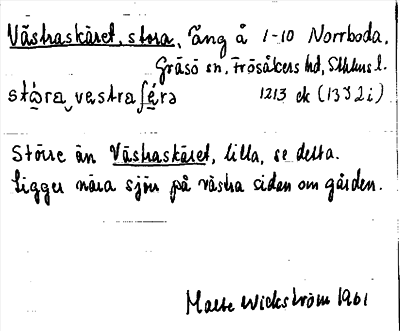 Västraskäret, stora, Äng å 1-10 Norrboda,
Gräsö sn, Frösåkers hd, Sthlms l.
stó̱ra vestra ʃé̱ra 1213 ek (1332i)
Större än Västraskäret, lilla, se detta.
Ligger nära sjön på västra sidan om gården.
Malte Wickström 1961